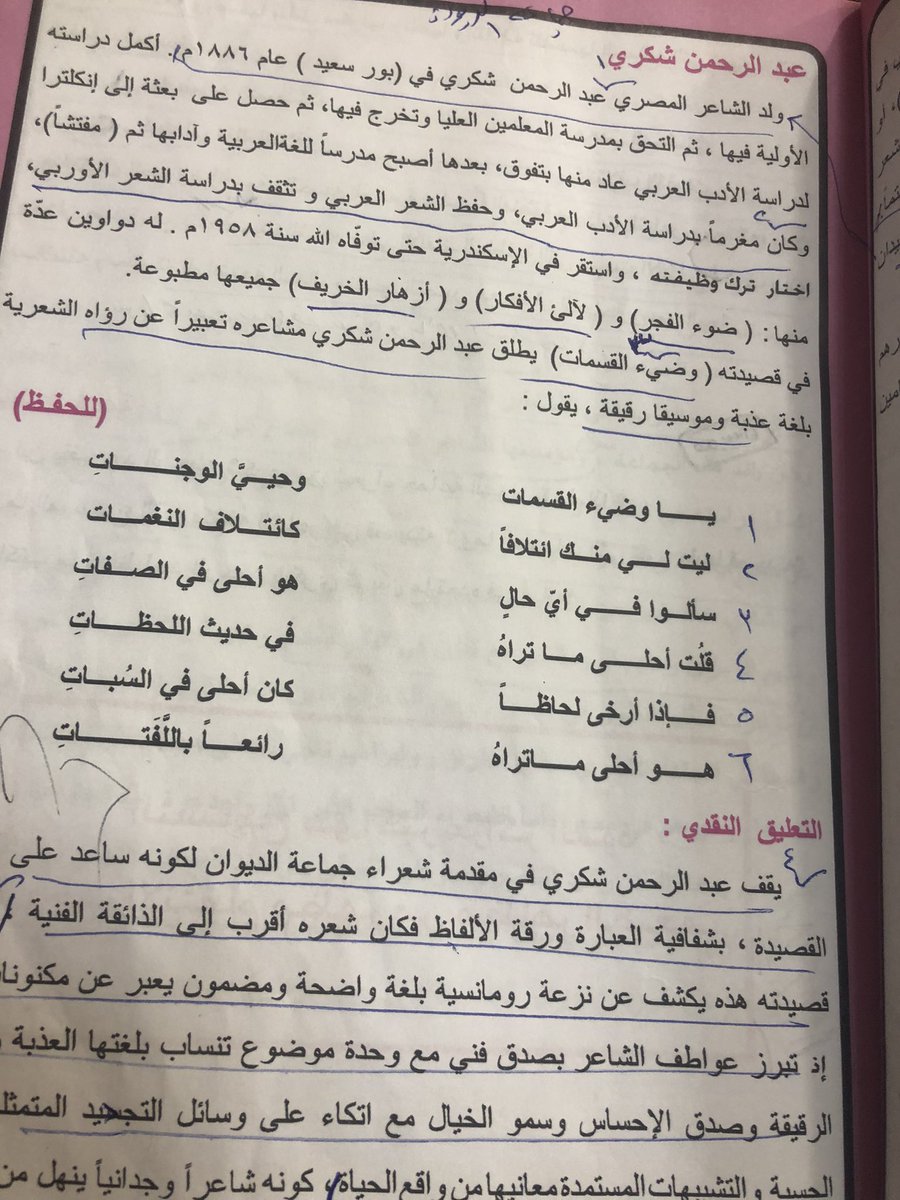 عبد الرحمن شكري
ولد الشاعر المصري عبد الرحمن شكري في (بور سعيد ) عام ١٨٨٦م. أكمل دراسته
الأولية فيها ، ثم التحق بمدرسة المعلمين العليا وتخرج فيها، ثم حصل على بعثة إلى إنكلترا
لدراسة الأدب العربي عاد منها بتفوق، بعدها أصبح مدرساً للغةالعربية وآدابها ثم ( مفتشاً)،
وكان مغرماً بدراسة الأدب العربي، وحفظ الشعر العربي و تثقف بدراسة الشعر الأوربي،
اختار ترك وظيفته ، واستقر في الإسكندرية حتى توفّاه الله سنة ١٩٥٨م . له دواوين عدّة
منها: ( ضوء الفجر) و ( لآلئ الأفكار) و ( أزهار الخريف) جميعها مطبوعة.
في قصيدته ( وضيء القسمات) يطلق عبد الرحمن شكري مشاعره تعبيراً عن رؤاه الشعرية
بلغة عذبة وموسيقا رقيقة ، يقول :
(للحفظ)
١ يـــا وضيء القسمات وحييَّ الوجنـــاتِ
٢ ليت لـــي منـك ائتلافاً كائتـــلاف النغمـات
٣ سألـوا فـــي أيّ حالٍ هو أحلى في الصفـاتِ
٤ قلُت أحلـــى مـا تراهُ في حديث اللحظـــاتِ
٥ فـــإذا أرخى لحاظـــاً كان أحلى في السُبـاتِ
٦ هـــو أحلى مـــاتراهُ رائعـــاً باللَّفَتـــاتِ
التعليق النقدي :
٤ يقف عبد الرحمن شكري في مقدمة شعراء جماعة الديوان لكونه ساعد على
القصيدة ، بشفافية العبارة ورقة الألفاظ فكان شعره أقرب إلى الذائقة الفنية
قصيدته هذه يكشف عن نزعة رومانسية بلغة واضحة ومضمون يعبر عن
إذ تبرز عواطف الشاعر بصدق فني مع وحدة موضوع تنساب بلغتها العذبة
الرقيقة وصدق الإحساس وسمو الخيال مع اتكاء على وسائل
الحسية و التشبيهات المستمدة معانيها من واقع الحياة، كونه شاعراً وجدانياً ينهل من